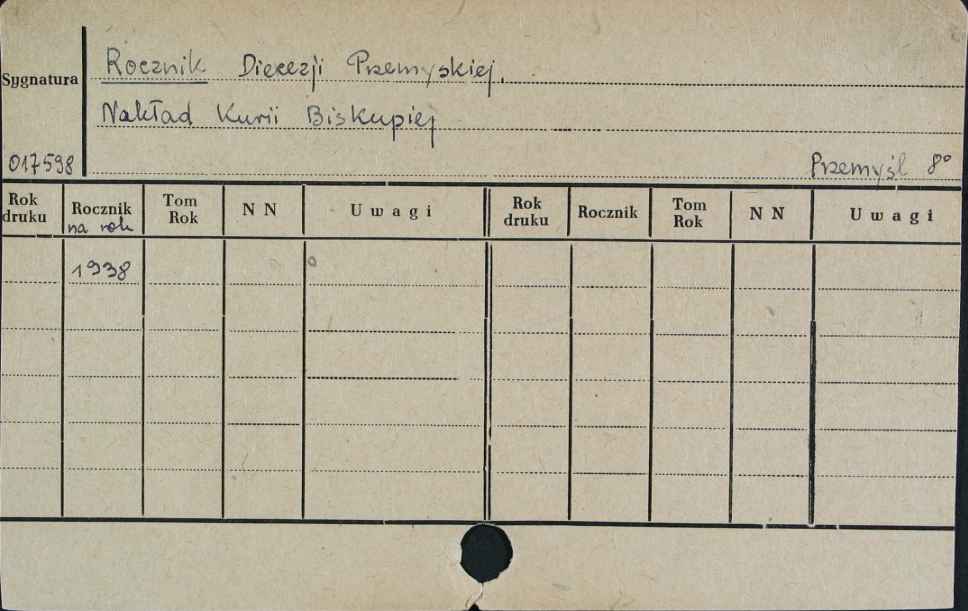 Rocznik Diecezji Przemyskiej.
Sygnatura
Nakład Kurii Biskupiej
017598
Przemyśl 8°
Rok druku Rocznik na rok Tom Rok N N Uwagi Rok druku Rocznik Tom Rok N N Uwagi
1938